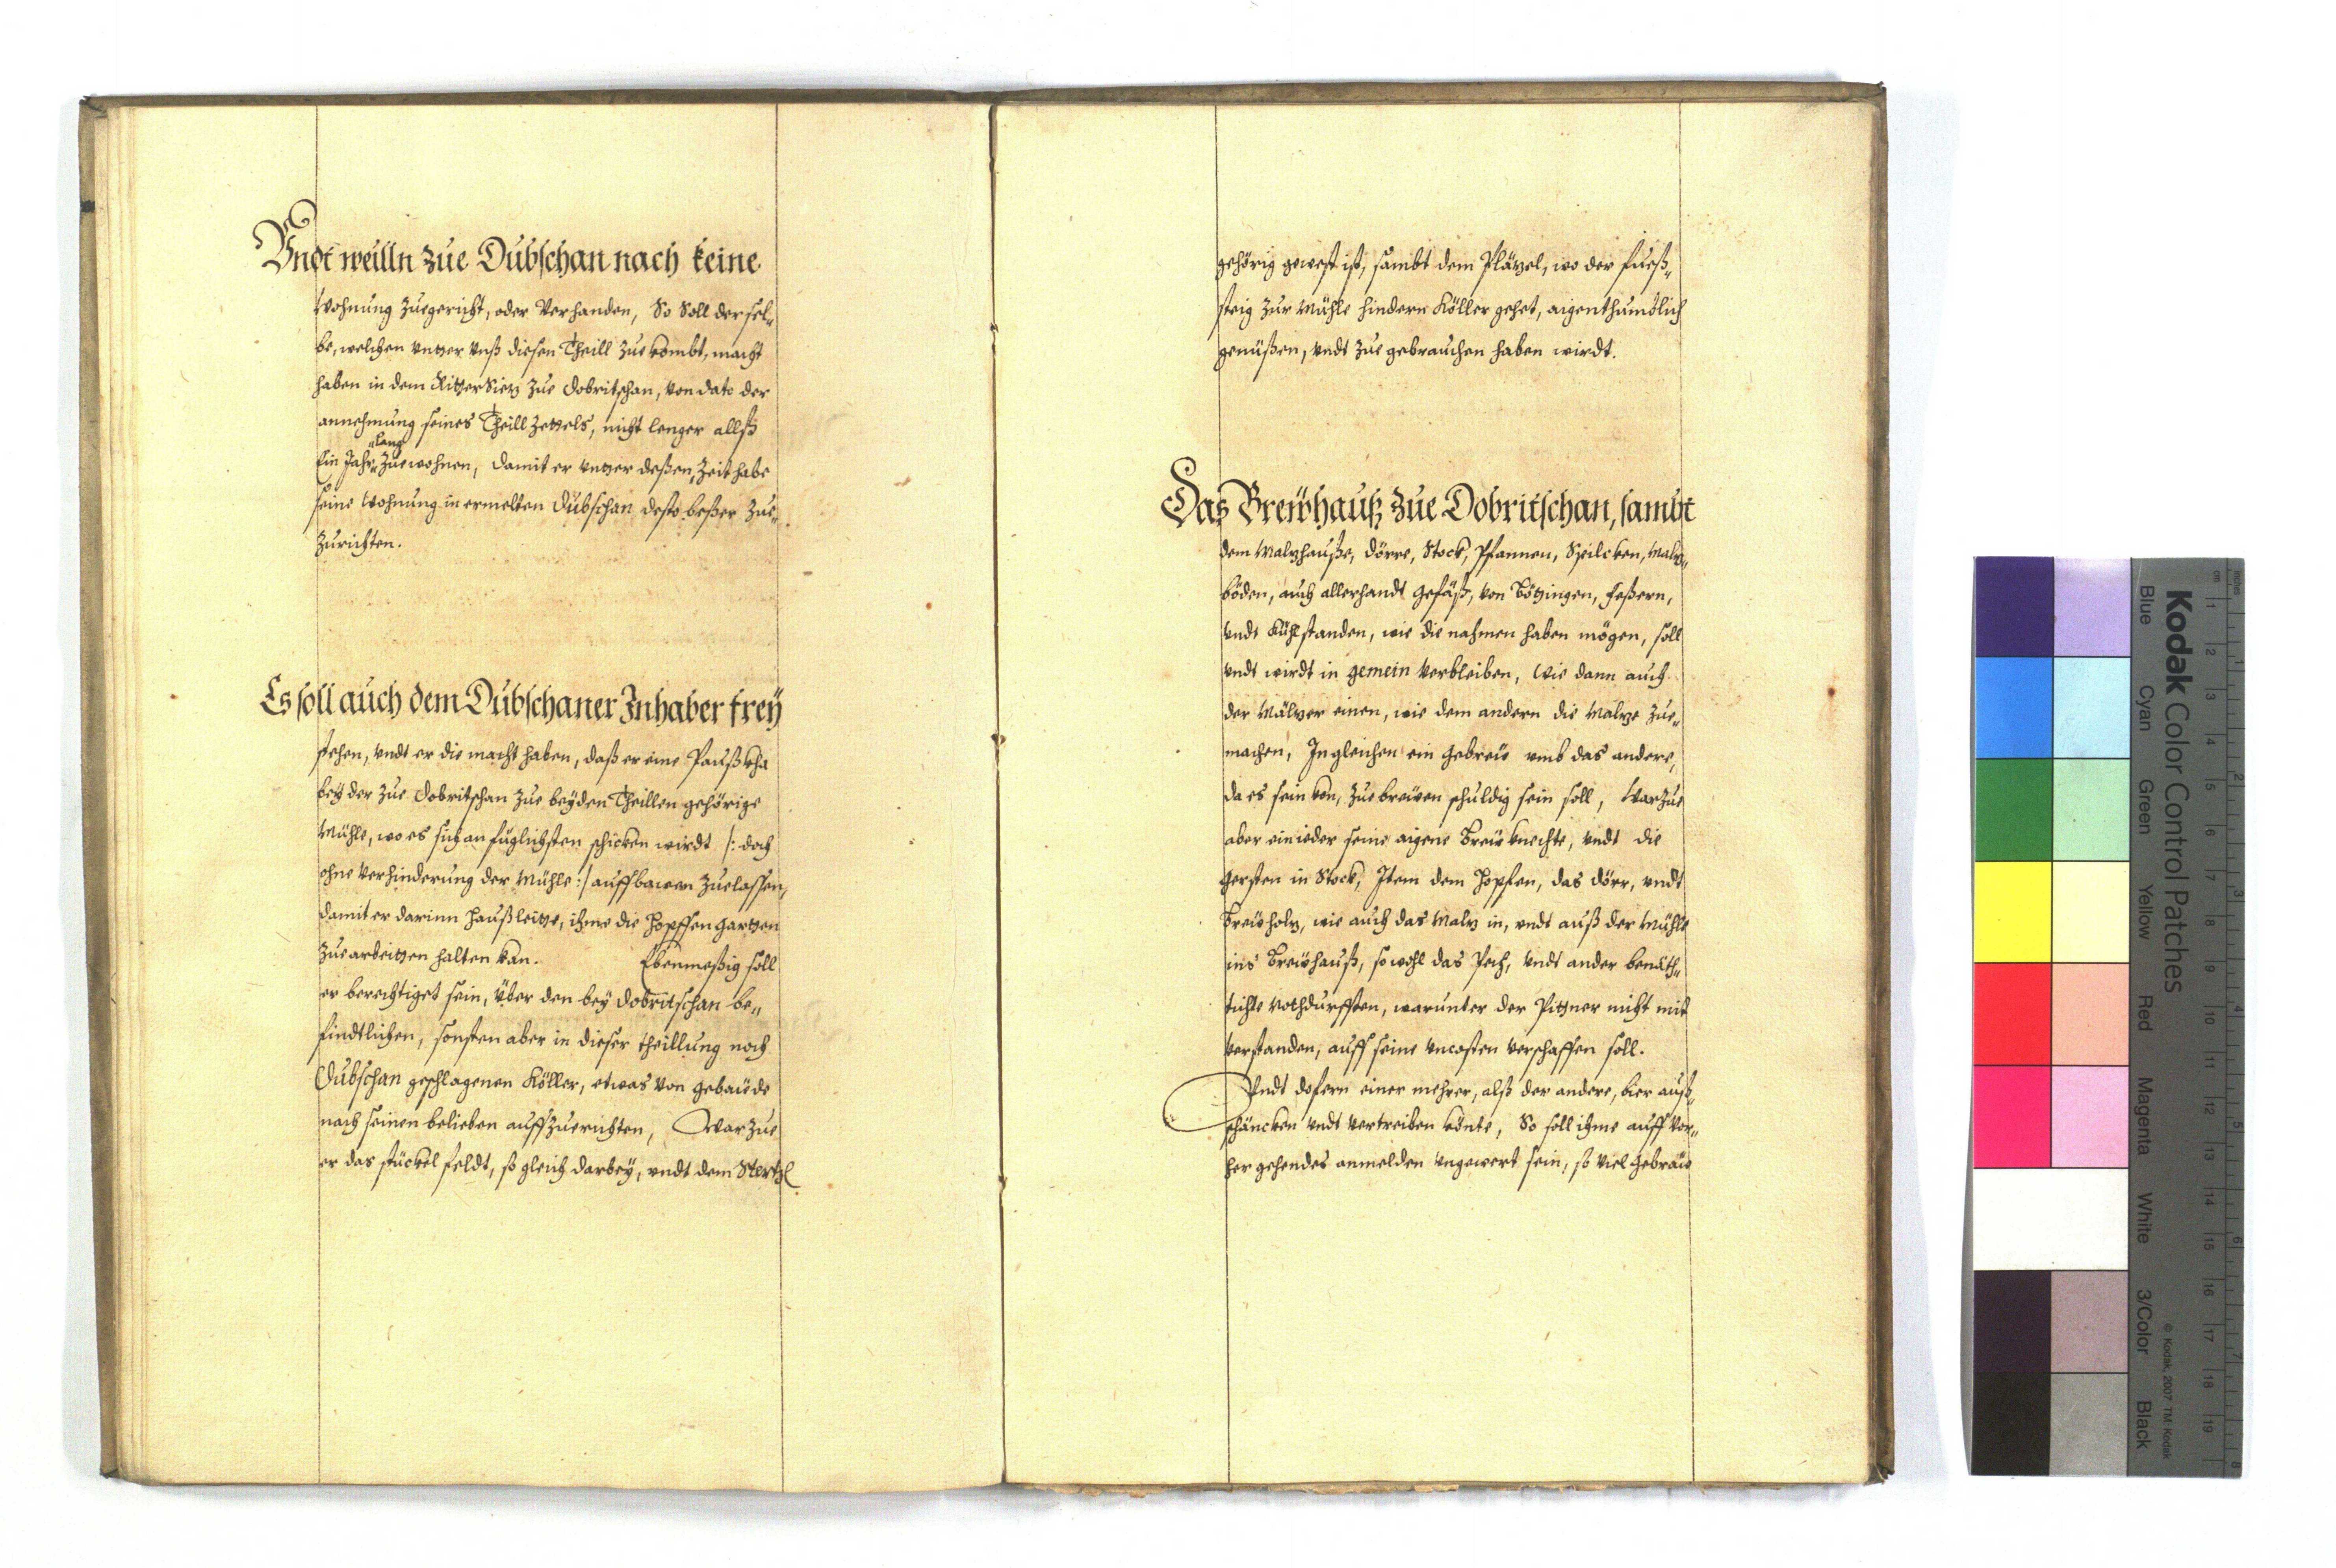 Vndt weilln zue Dubschan nach keine
Wohnung zuegericht, oder Verhanden, So Soll dersel„
be, welchen vnter vnß diesen Theill zue kombt, macht
haben in dem RitterSiez zue Dobritschan, von dato der
annehmung seines Theill Zettels, nicht lenger allß
„lang
Ein Jahr„ zue wohnen, damit er vnter deßen, Zeit habe
seine Wohnung in ermelten Dubschan desto beßer zue„
zurichten.
Es soll auch dem Dubschaner Inhaber frey
stehen, vndt er die macht haben, daß er eine
bey der zue Dobritschan zue beyden Theillen gehörige
Mühle, wo es sich am füglichsten schicken wirdt /: doch
ohne Verhinderung der Mühle :/ auffbawen zuelassen,
damit er darinn haußleitte, ihme die Hopffengarten
zue arbeitten halten kan. Ebenmeßig soll
er berechtiget sein, Über den bey Dobritschan be„
findtlichen, sonsten aber in dieser theillung noch
Dubschan geschlagenen Köller, etwas von gebaüde
nach seinen belieben auffzuerichten, Warzue
er das stückel feldt, so gleich darbey, vndt dem Stertzl
gehörig gewest ist, sambt dem Pläzel, wo der fueß„
steig zur Mühle hindern Köller gehet, aigenthumblich
genüßen, vndt zue gebrauchen haben wirdt.
Das Brewhauß zue Dobritschan, sambt
dem Malzhauße, Dörre, Stock, Pfannen, Malz„
böden, auch allerhandt gefäß, von Bottingen, feßern,
vndt Kühlstanden, wie die nahmen haben mögen, soll
vndt wirdt in gemein Verbleiben, Wie dann auch
der Mälzer einen, wie dem andern die Malze zue„
machen, Ingleichen ein gebrew vmb das andere,
da es sein kan, zue brewen schuldig sein soll, Warzue
aber ein ieder seine aigene Brew knechte, vndt die
Gersten in Stock, Item dem Hopffen, das dörr, vndt
Brewholz, wie auch das Malz in, vndt auß der Mühle
ins Brewhauß, sowohl das Pech, vndt ander benöth„
tichte Nothdurfften, warunter der Pittner nicht mit
verstanden, auff seine vncosten verschaffen soll.
Vndt dofern einer mehrer, alß der andere, bier auß„
schäncken vndt vertreiben könte, So soll ihme auff vor„
her gehendes anmelden vngewert sein, so viel Gebräw